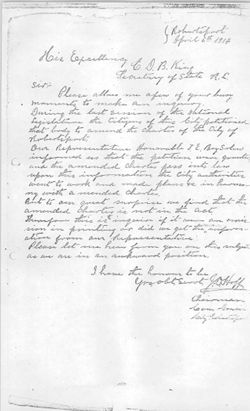 Robertsport
April 6th 1914
His Excellency C. D. B. King
Secretary of State R. L.
Sir:
Please allow me a few of your busy
moments to make an inquiry.
During the last session of the National
Legislature the citizens of this City petitioned
that body to amend the charter of the City of
Robertsport.
Our Representative Honorable
informed us that the petition was granted
and the amended Charter past into law
upon this information the City authorities
went to work and
with amended Charter.
But to our great surprise we find that the
amended Charter is not in the Act
therefore this is to inquire if it were an omis-
sion in printing or did we get the inform-
ation from our Representative
Please let me hear from you on this subject
as we are in an awkward position.
I have the honour to be
Your Obt Servt
Chairman